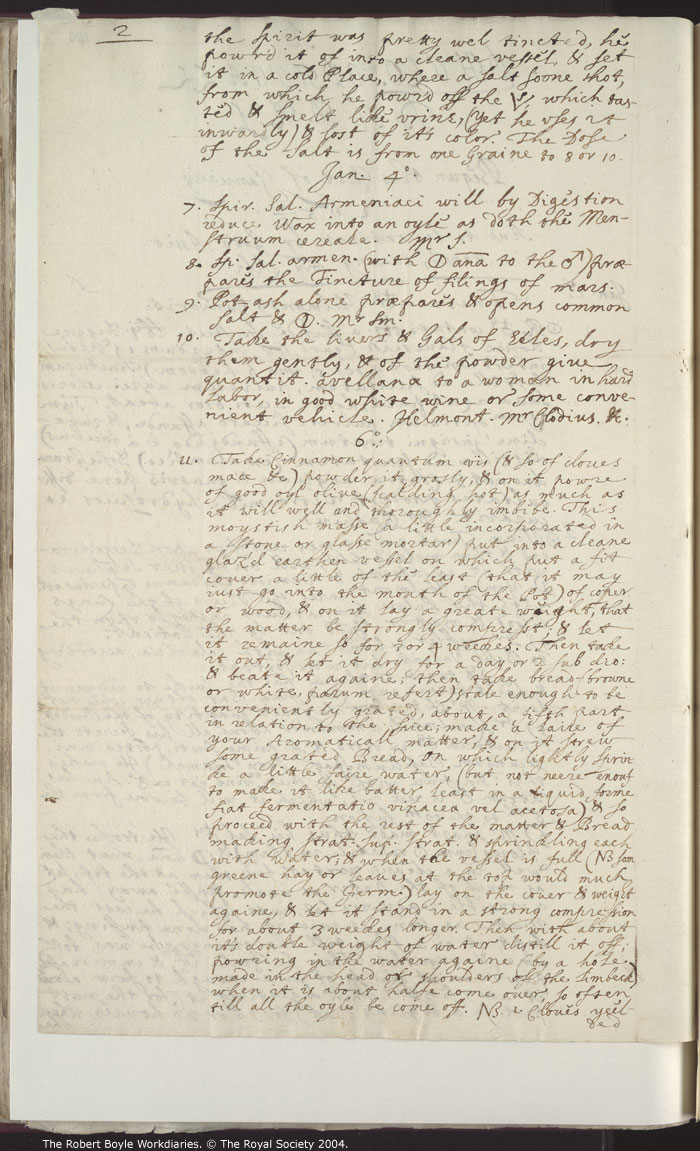 2
the spirit was pretty wel tincted, he
powr'd it of into a cleane vessel, & set
it in a cold Place, where a salt soone shot,
from which he powr'd off the which tas-
ted & smelt like vrine, (yet he vses it
inwardly) & lost of it's color. The Dose
of the Salt is from one Graine to 8 or 10.
Jan. 4°.
7. Spir. Sal. Armeniaci will by Digestion
reduce Wax into an oyle as doth the Men-
struum cereale. Mr S.
8. Sp. Sal. armen. (with ana to the ♂) præ-
pares the Tincture of filings of mars.
9. Pot ash alone præpares & opens common
Salt & Mr Sm.
10. Take the livers & Gals of Eeles, dry
them gently, & of the powder give
quantit. avellanæ to a woman in hard
Labor, in good white wine or some conve-
nient vehicle. Helmont. Mr Clodius. &c.
6°
11. Take Cinnamon quantum vis (& so of cloues
mace &c) powder it grosly, & on it powre
of good oyl oliue (scalding hot) as much as
it will well and thoroughly imbibe. This
moystish masse (a little incorporated in
a stone or glasse mortar) put into a cleane
glaz'd earthen vessel on which put a fit
cover a little of the least (that it may
iust go into the mouth of the Pot) of coper
or wood, & on it lay a great weight, that
the matter be strongly comprest, & let
it remaine so for 3 or 4 weekes. Then take
it out, & let it dry for a day or 2 sub dio:
& beate it againe; then take bread (browne
or white, parum refert) stale enough to be
conveniently grated, about a fifth part
in relation to the spice; make a laire of
your Aromaticall matter, & on it strew
some grated Bread, on which lightly sprin-
kle a little faire water, (but not neere enouf
to make it like batter, least in a liquid forme
fiat fermentatio vinacea vel acetosa) & so
proceed with the rest of the matter & Bread
making strat. sup. strat. & sprinkling each
with Water; & when the vessel is full (NB som
greene hay or leaves at the top would much
promote the Ferme.) lay on the cover & weight
againe, & let it stand in a strong compression
for about 3 weekes longer. Then with about
it's double weight of water distill it off;
powring in the water againe (by a hole
made in the head or shoulders of the limbeck)
when it is about halfe come over, so often
till all the oyle be come off. NB. Cloues yeel-
ded
The Robert Boyle Workdiaries. © The Royal Society 2004.